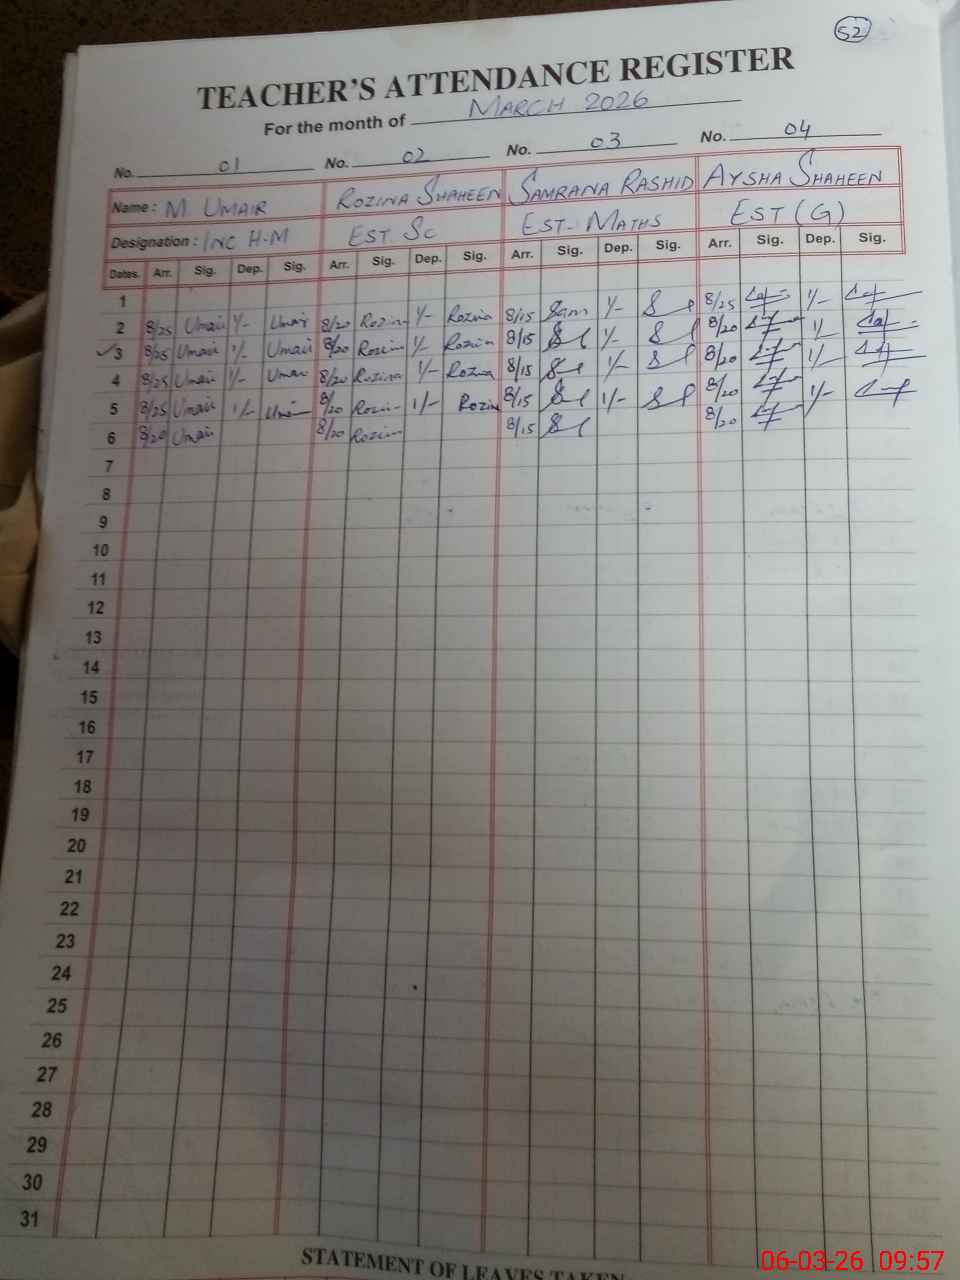 52
TEACHER'S ATTENDANCE REGISTER
For the month of MARCH 2026
No. 01 No. 02 No. 03 No. 04
Name : M. UMAIR ROZINA SHAHEEN SAMRANA RASHID AYSHA SHAHEEN
Designation : INC H-M EST SC EST-MATHS EST (G)
Dates. Arr. Sig. Dep. Sig. Arr. Sig. Dep. Sig. Arr. Sig. Dep. Sig. Arr. Sig. Dep. Sig.
1
2 8/25 Umair 1/- Umair 8/20 Rozina 1/- Rozina 8/15 Sam 1/- 8/25 1/-
3 8/25 Umair 1/- Umair 8/20 Rozina 1/- Rozina 8/15 1/- 8/20 1/
4 8/25 Umair 1/- Umair 8/20 Rozina 1/- Rozina 8/15 1/- 8/20 1/-
5 8/25 Umair 1/- Umair 8/20 Rozina 1/- Rozina 8/15 1/- 8/20 1/-
6 8/20 Umair 8/20 Rozina 8/15 8/20
7
8
9
10
11
12
13
14
15
16
17
18
19
20
21
22
23
24
25
26
27
28
29
30
31
STATEMENT OF LEAVES TAKEN
06-03-26 09:57